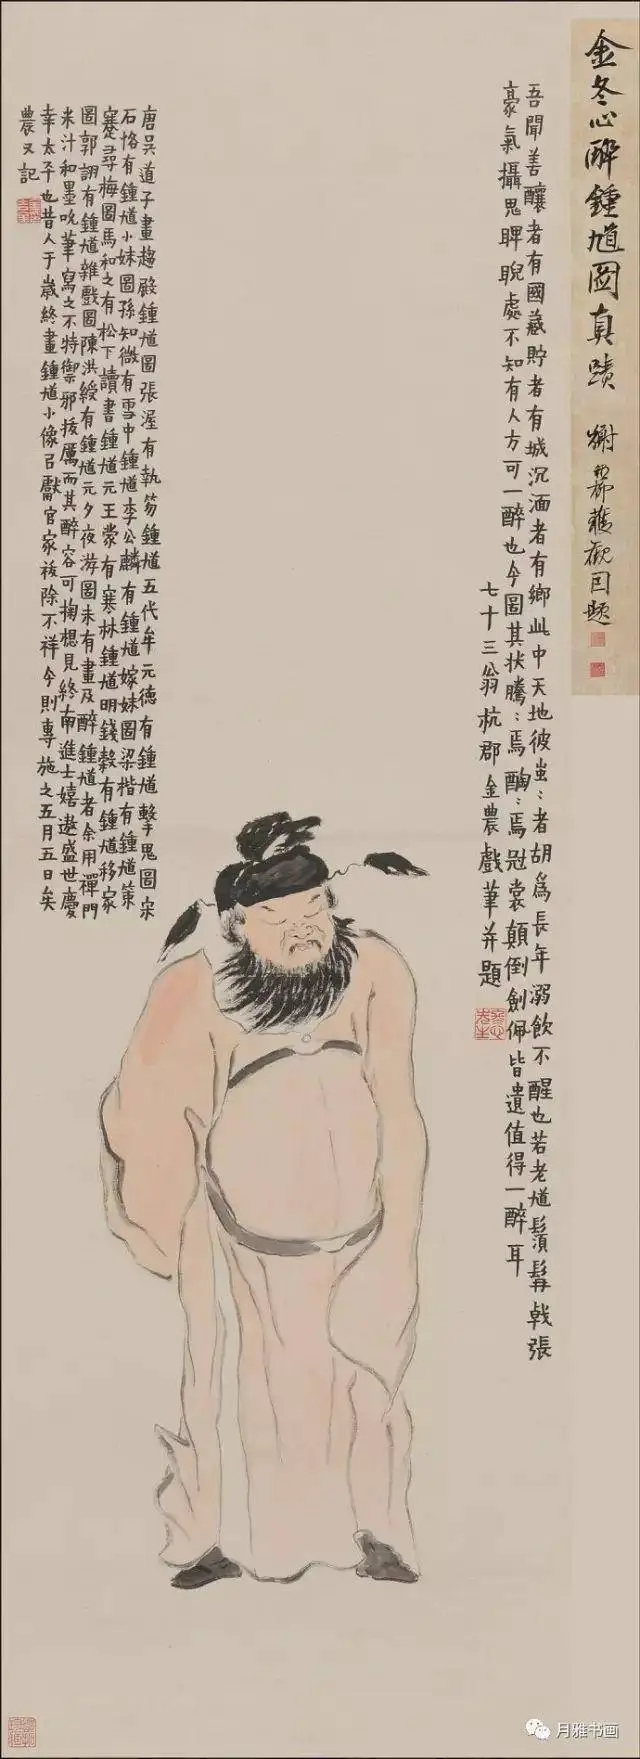 金冬心醉鍾馗圖真蹟
獲觀因題
吾聞善釀者有國藏貯者有城沉湎者有鄉此中天地彼蚩:者胡為長年溺飲不醒也若老馗鬚髯戟張
豪氣攝鬼睥睨處不知有人方可一醉也今圖其狀騰:焉醄:焉冠裳顛倒劍佩皆遺值得一醉耳
七十三翁杭郡金農戲筆并題
唐吳道子畫趨殿鍾馗圖張渥有執笏鍾馗五代牟元德有鍾馗擊鬼圖宋
石恪有鍾馗小妹圖孫知微有雪中鍾馗李公麟有鍾馗嫁妹圖梁楷有鍾馗策
蹇尋梅圖馬和之有松下讀書鍾馗元王蒙有寒林鍾馗明錢穀有鍾馗移家
圖郭詡有鍾馗雜戲圖陳洪綬有鍾馗元夕夜游圖未有畫及醉鍾馗者余用禪門
米汁和墨吮筆寫之不特禦邪拔厲而其醉容可掬想見終南進士嬉遨盛世慶
幸太平也昔人于歲終畫鍾馗小像以獻官家祓除不祥今則專施之五月五日矣
農又記
月雅书画